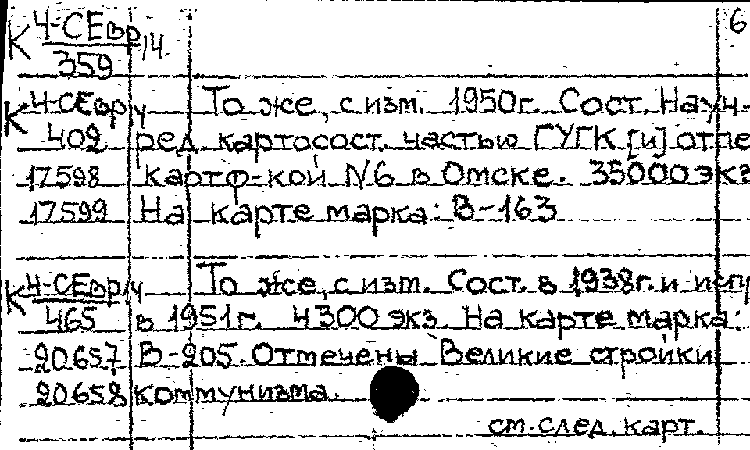 К 4-СЕвр/4 6
359
К 4-СЕвр/4 То же, с изм. 1950г. Сост. Науч.-
402 ред. картосост. частью ГУГК [и] отпе
17598 картф-кой N6 в Омске. 35000 экз
17599 На карте марка: В-163
К 4-СЕвр/4 То же, с изм. Сост. в 1938г. и испр
465 в 1951г. 4300 экз. На карте марка:
20657 В-205. Отмечены Великие стройки
20658 коммунизма.
см. след. карт.